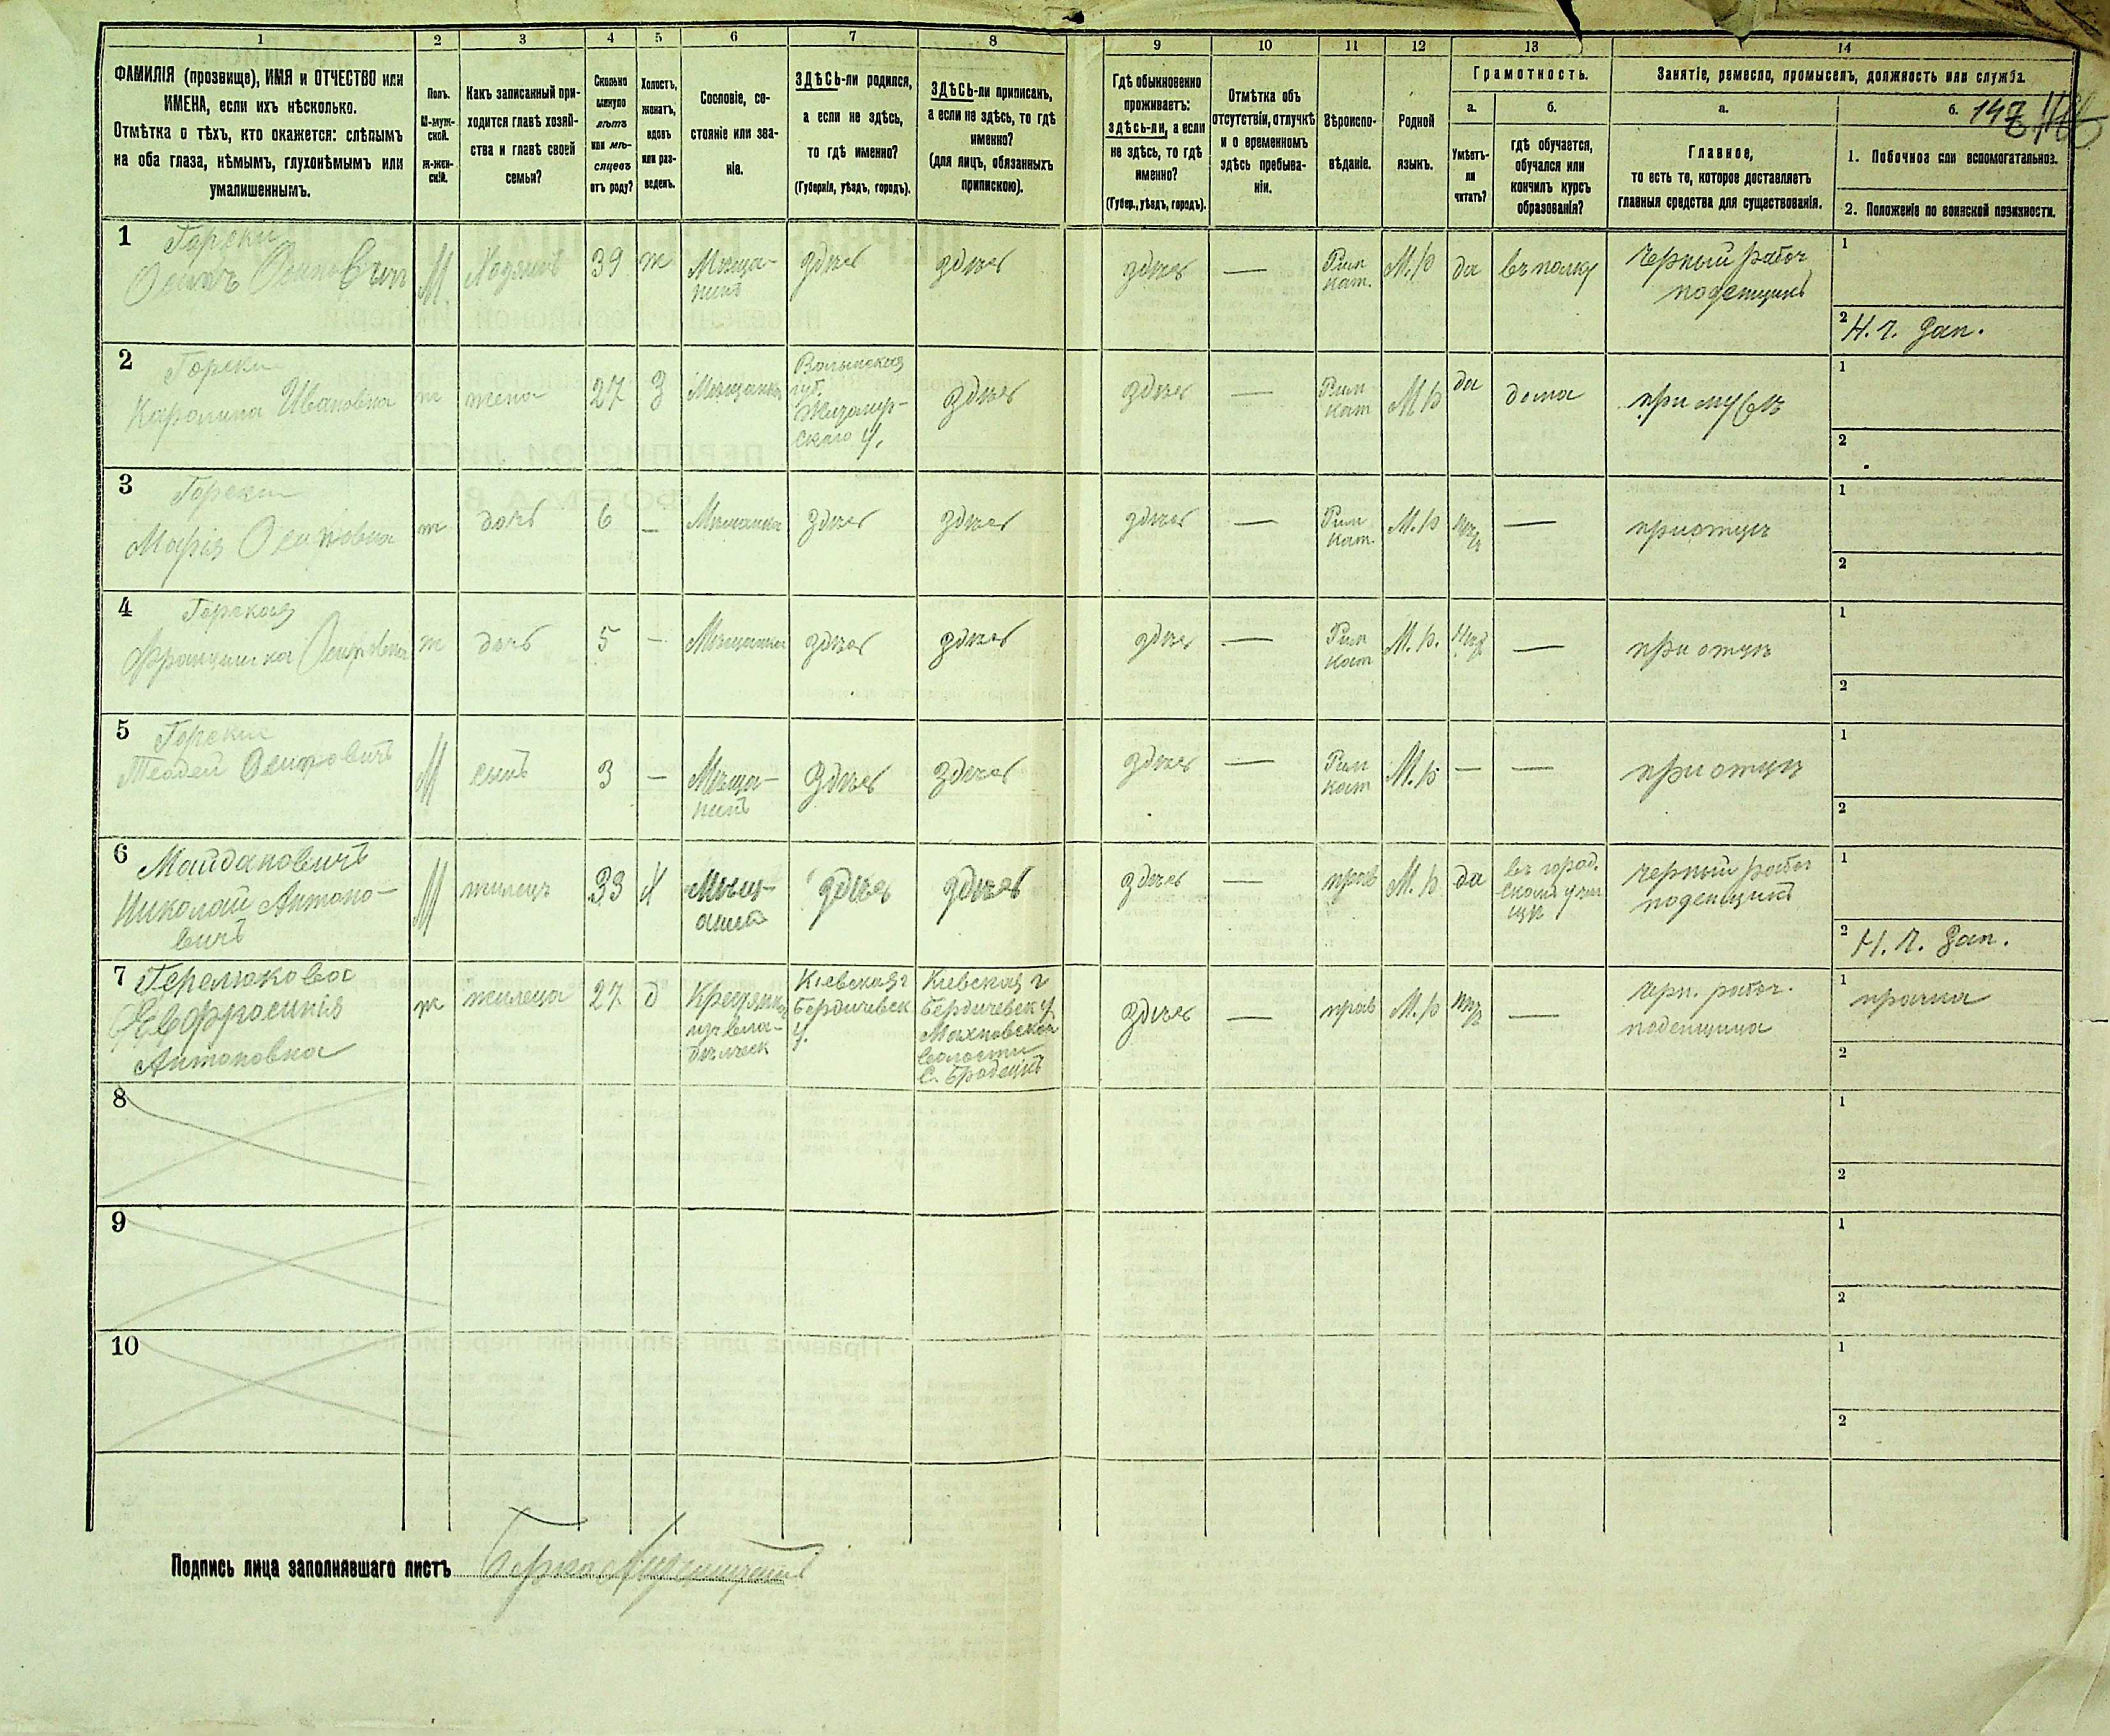 1 2 3 4 5 6 7 8 9 10 11 12 13 14
ФАМИЛІЯ (прозвище), ИМЯ и ОТЧЕСТВО или
ИМЕНА, если ихъ нѣсколько.
Отмѣтка о тѣхъ, кто окажется: слѣпымъ
на оба глаза, нѣмымъ, глухонѣмымъ или
умалишеннымъ.
Полъ.
М-муж-
ской.
ж-жен-
скій.
Какъ записанный при-
ходится главѣ хозяй-
ства и главѣ своей
семьи?
Сколько
минуло
лѣтъ
или мѣ-
сяцевъ
отъ роду?
Холостъ,
женатъ,
вдовъ
или раз-
веденъ.
Сословіе, со-
стояніе или зва-
ніе.
ЗДѢСЬ-ли родился,
а если не здѣсь,
то гдѣ именно?
(Губернія, уѣздъ, городъ).
ЗДѢСЬ-ли приписанъ,
а если не здѣсь, то гдѣ
именно?
(для лицъ, обязанныхъ
припискою).
Гдѣ обыкновенно
проживаетъ:
здѣсь-ли, а если
не здѣсь, то гдѣ
именно?
(Губер., уѣздъ, городъ).
Отмѣтка объ
отсутствіи, отлучкѣ
и о временномъ
здѣсь пребыва-
ніи.
Вѣроиспо-
вѣданіе.
Родной
языкъ.
Грамотность.
а.
Умѣетъ-
ли
читать?
б.
гдѣ обучается,
обучался или
кончилъ курсъ
образованія?
Занятіе, ремесло, промыселъ, должность или служба.
а.
Главное,
то есть то, которое доставляетъ
главныя средства для существованія.
б.
1. Побочное или вспомогательное.
2. Положеніе по воинской повинности.
1 Горски
Осипъ
М Хозяинъ 39 ж Мѣща-
нинъ
здѣсь здѣсь здѣсь — Рим
кат. М.р да въ полку
черный рабоч
поденщикъ
1
2 Н. ч. зап.
2 Горски
Каролина Ивановна
ж жена 27 З Мѣщанка
Волынская
губ.
Житомір-
скаго у.
здѣсь здѣсь — Рим
кат М р да дома при мужѣ
1
2
3 Горски
Марія Осиповна
ж дочь 6 — Мѣщанка здѣсь здѣсь здѣсь — Рим
кат. М.р — при отцѣ
1
2
4 Горская
Францишка Осиповна
ж дочь 5 — Мѣщанка здѣсь здѣсь здѣсь — Рим
кат М.р. — при отцѣ
1
2
5 Горски
Осиповичъ
М сынъ 3 — Мѣща-
нинъ
здѣсь здѣсь здѣсь — Рим
кат М.р — — при отцѣ
1
2
6 Майдановичъ
Николай Антоно-
вичъ
М жилецъ 33 Х Мѣщ-
анинъ
здѣсь здѣсь здѣсь — прав М.р да
въ город.
скомъ учи
щѣ
черный рабоч
поденщикъ
1
2 Н. ч. зап.
7
Евфросинія
Антоновна
ж жилеца 27 д Крестянка
изъ вла-
дѣльческ
Кіевская г
Бердичевск
у.
Кіевская г
Бердичевск у
Махновской
волости
с. Бродецкъ
здѣсь — прав М.р —
черн. рабоч.
поденщица
1 прачка
2
8
1
2
9
1
2
10
1
2
Подпись лица заполнявшаго листъ